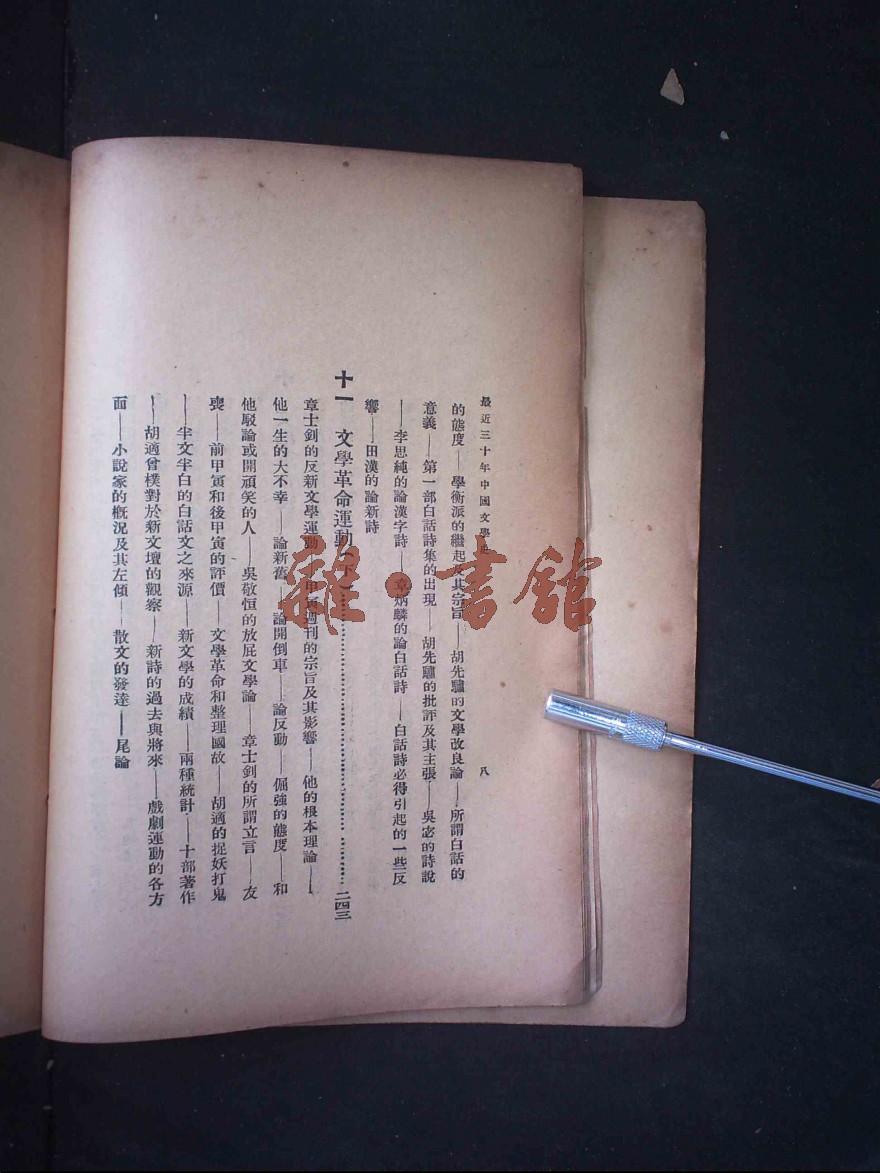 最近三十年中國文學史
八
的態度——學衡派的繼起及其宗旨——胡先驌的文學改良論——所謂白話的
意義——第一部白話詩集的出現——胡先驌的批評及其主張——吳宓的詩說
——李思純的論漢字詩——章炳麟的論白話詩——白話詩必得引起的一些反
響——田漢的論新詩
十一 文學革命運動(下)……二四三
章士釗的反新文學運動——甲寅週刊的宗旨及其影響——他的根本理論——
他一生的大不幸——論新舊——論開倒車——論反動——倔強的態度——和
他駁論或開頑笑的人——吳敬恒的放屁文學論——章士釗的所謂立言——友
喪——前甲寅和後甲寅的評價——文學革命和整理國故——胡適的捉妖打鬼
——半文半白的白話文之來源——新文學的成績——兩種統計——十部著作
——胡適曾樸對於新文壇的觀察——新詩的過去與將來——戲劇運動的各方
面——小說家的概況及其左傾——散文的發達——尾論
雜·書館